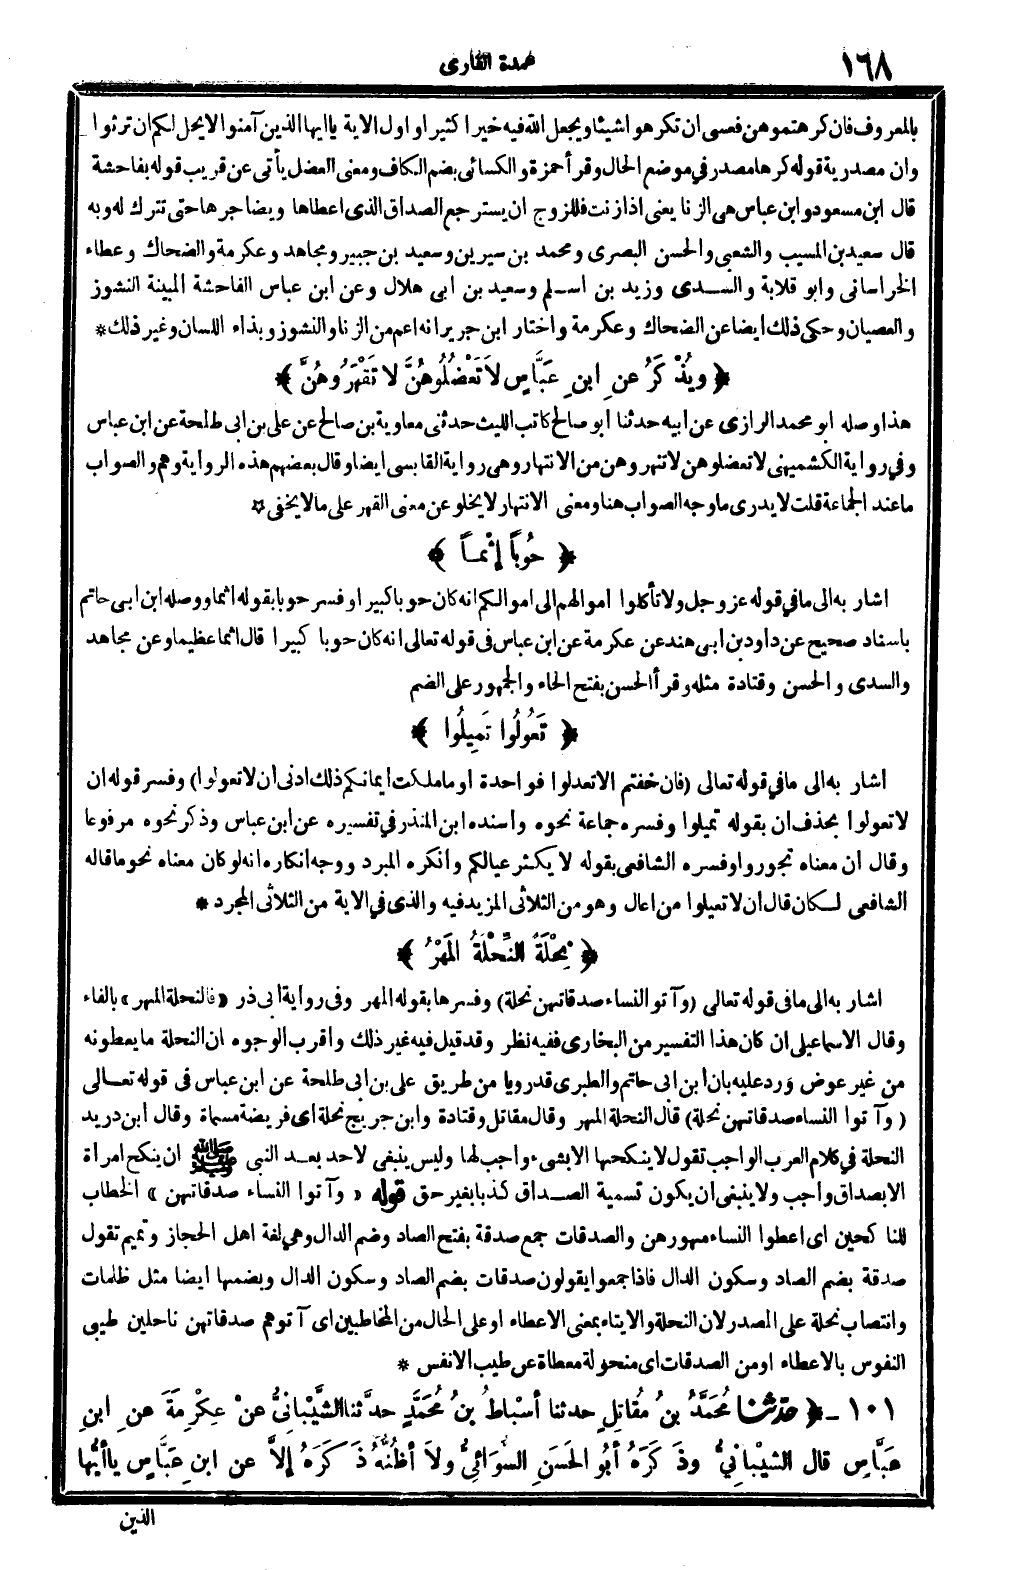 ١٦٨
عمدة القارى
بالمعروف فان كرهتموهن فعسى ان تكرهوا شيئا ويجعل الله فيه خيرا كثيرا واول الاية ياايها الذين آمنوا لايحل لكم ان ترثوا
وان مصدرية قوله كرها مصدر في موضع الحال وقرأ حمزة والكسائى بضم الكاف ومعنى العضل يأتى عن قريب قوله بفاحشة
قال ابن مسعود وابن عباس هى الزنا يعنى اذا زنت فللزوج ان يسترجع الصداق الذى اعطاها ويضاجرها حتى تترك له وبه
قال سعيد بن المسيب والشعبى والحسن البصرى ومحمد بن سيرين وسعيد بن جبير ومجاهد وعكرمة والضحاك وعطاء
الخراسانى وابو قلابة والسدى وزيد بن اسلم وسعيد بن ابى هلال وعن ابن عباس الفاحشة المبينة النشوز
والعصيان وحكى ذلك ايضا عن الضحاك وعكرمة واختار ابن جرير انه اعم من الزنا والنشوز وبذاء اللسان وغير ذلك *
﴿ ويُذْكَرُ عنِ ابنِ عَبَّاسٍ لاَ تَعْضُلُوهُنَّ لا تَقْهَرُوهُنَّ ﴾
هذا وصله ابو محمد الرازى عن ابيه حدثنا ابو صالح كاتب الليث حدثنى معاوية بن صالح عن على بن ابى طلحة عن ابن عباس
وفي رواية الكشميهنى لاتعضلوهن لاتنهروهن من الانتهار وهى رواية القابسى ايضا وقال بعضهم هذه الرواية وهم والصواب
ماعند الجماعة قلت لايدرى ماوجه الصواب هنا ومعنى الانتهار لايخلو عن معنى القهر على مالايخفى *
﴿ حُوباً إثْمـاً ﴾
اشار به الى مافي قوله عز وجل ولا تأكلوا اموالهم الى اموالكم انه كان حوبا كبيرا وفسر حوبا بقوله اثما ووصله ابن ابى حاتم
باسناد صحيح عن داود بن ابى هند عن عكرمة عن ابن عباس فى قوله تعالى انه كان حوبا كبيرا قال اثما عظيما وعن مجاهد
والسدى والحسن وقتادة مثله وقرأ الحسن بفتح الحاء والجمهور على الضم
﴿ تَعُولُوا تَمِيلُوا ﴾
اشار به الى مافي قوله تعالى (فان خفتم الاتعدلوا فواحدة او ماملكت ايمانكم ذلك ادنى ان لاتعولوا) وفسر قوله ان
لاتعولوا بحذف ان بقوله تميلوا وفسره جماعة نحوه واسنده ابن المنذر في تفسيره عن ابن عباس وذكر نحوه مرفوعا
وقال ان معناه تجوروا وفسره الشافعى بقوله لا يكثر عيالكم وانكره المبرد ووجه انكاره انه لو كان معناه نحو ماقاله
الشافعى لكان قال ان لاتعيلوا من اعال وهو من الثلاثى المزيد فيه والذى في الاية من الثلاثى المجرد *
﴿ نِحْلَةً النِّحْلَةُ المَهْرُ ﴾
اشار به الى مافى قوله تعالى (وآتوا النساء صدقاتهن نحلة) وفسرها بقوله المهر وفى رواية ابى ذر «فالنحلة المهر» بالفاء
وقال الاسماعيلى ان كان هذا التفسير من البخارى ففيه نظر وقد قيل فيه غير ذلك واقرب الوجوه ان النحلة مايعطونه
من غير عوض ورد عليه بان ابن ابى حاتم والطبرى قدرويا من طريق على بن ابى طلحة عن ابن عباس فى قوله تعـالى
(وآتوا النساء صدقاتهن نحلة) قال النحلة المهر وقال مقاتل وقتادة وابن جريج نحلة اى فريضة مسماة وقال ابن دريد
النحلة في كلام العرب الواجب تقول لاينكحها الابشىء واجب لها وليس ينبغى لاحد بعد النبى ﷺ ان ينكح امرأة
الابصداق واجب ولاينبغى ان يكون تسمية الصداق كذبا بغير حق قوله «وآتوا النساء صدقاتهن» الخطاب
للناكحين اى اعطوا النساء مهورهن والصدقات جمع صدقة بفتح الصاد وضم الدال وهى لغة اهل الحجاز وتميم تقول
صدقة بضم الصاد وسكون الدال فاذا جمعوا يقولون صدقات بضم الصاد وسكون الدال وبضمها ايضا مثل ظلمات
وانتصاب نحلة على المصدر لان النحلة والايتاء بمعنى الاعطاء او على الحال من المخاطبين اى آتوهم صدقاتهن ناحلين طيبى
النفوس بالاعطاء او من الصدقات اى منحولة معطاة عن طيب الانفس *
١٠١ - ﴿ حدثنا مُحَمَّدُ بنُ مُقاتِلٍ حدثنا أسْباطُ بنُ مُحَمَّدٍ حدثنا الشَّيْبَانِىُّ عنْ عِكْرِمَةَ عنِ ابنِ
عَبَّاسٍ قال الشَّيْبَانِيُّ وذَكَرَهُ أبُو الحَسَنِ السُّوَائِىُّ ولاَ أظُنُّهُ ذَكَرَهُ إلاَّ عن ابنِ عَبَّاسٍ ياأيُّها
الذين